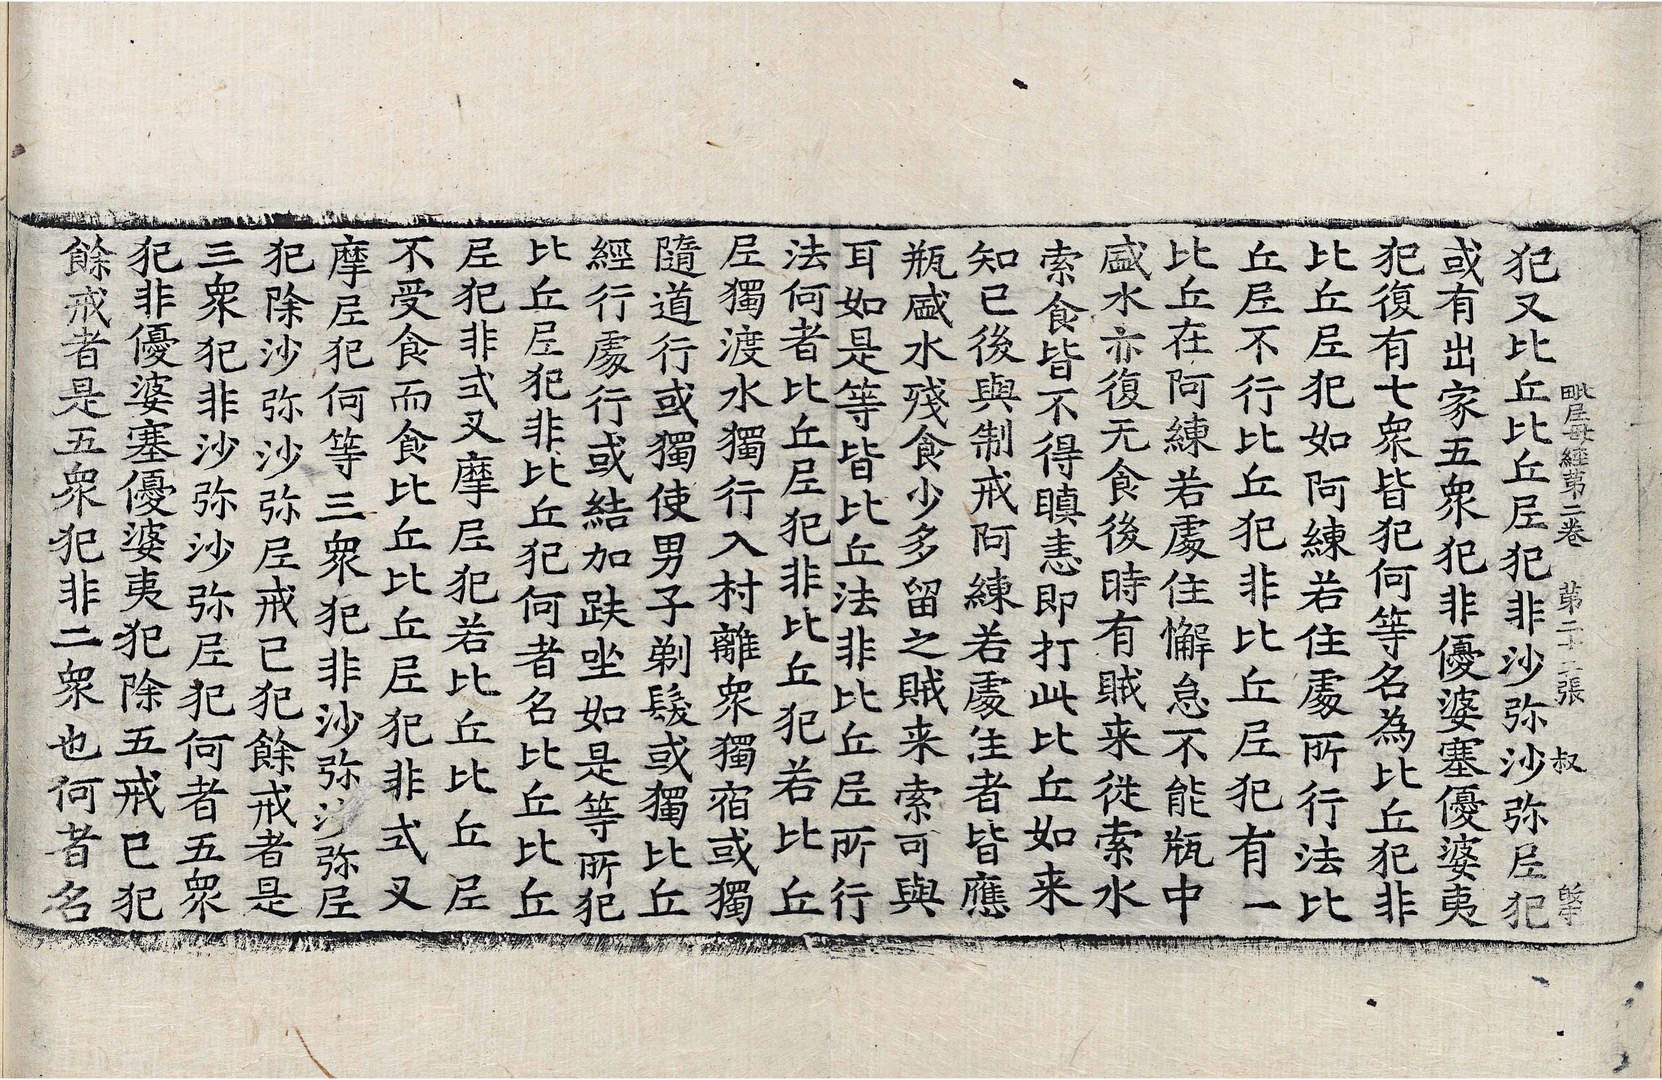 毗尼母經第二卷　第二十二張　叔
犯又比丘比丘尼犯非沙弥沙弥尼犯
或有出家五衆犯非優婆塞優婆夷
犯復有七衆皆犯何等名為比丘犯非
比丘尼犯如阿練若住處所行法比
丘尼不行比丘犯非比丘尼犯有一
比丘在阿練若處住懈怠不能瓶中
盛水亦復无食後時有賊来從索水
索食皆不得瞋恚即打此比丘如来
知已後與制戒阿練若處住者皆應
瓶盛水殘食少多留之賊来索可與
耳如是等皆比丘法非比丘尼所行
法何者比丘尼犯非比丘犯若比丘
尼獨渡水獨行入村離衆獨宿或獨
隨道行或獨使男子剃髮或獨比丘
經行處行或結加趺坐如是等所犯
比丘尼犯非比丘犯何者名比丘比丘
尼犯非式叉摩尼犯若比丘比丘尼
不受食而食比丘比丘尼犯非式叉
摩尼犯何等三衆犯非沙弥沙弥尼
犯除沙弥沙弥尼戒已犯餘戒者是
三衆犯非沙弥沙弥尼犯何者五衆
犯非優婆塞優婆夷犯除五戒已犯
餘戒者是五衆犯非二衆也何者名